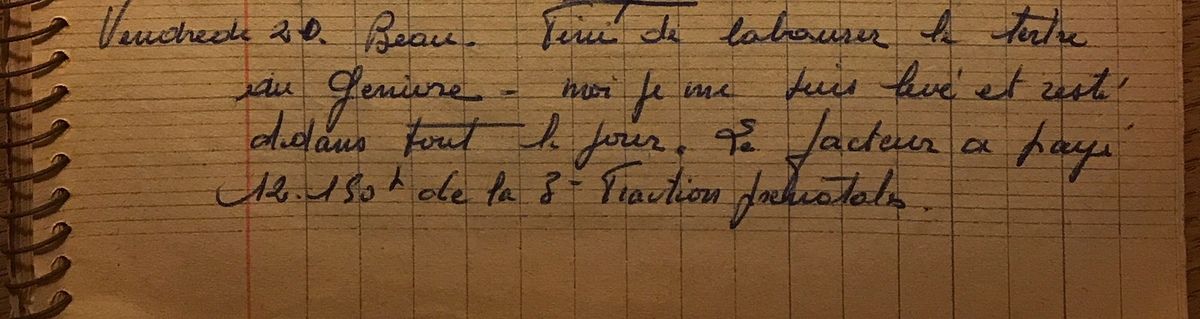 Vendredi 20. Beau. Fini de labourer le tertre
du Genièvre - moi je me suis levé et resté
dedans tout le jour. Le facteur a payé
12.150 F de la 3e Fraction prénatales.